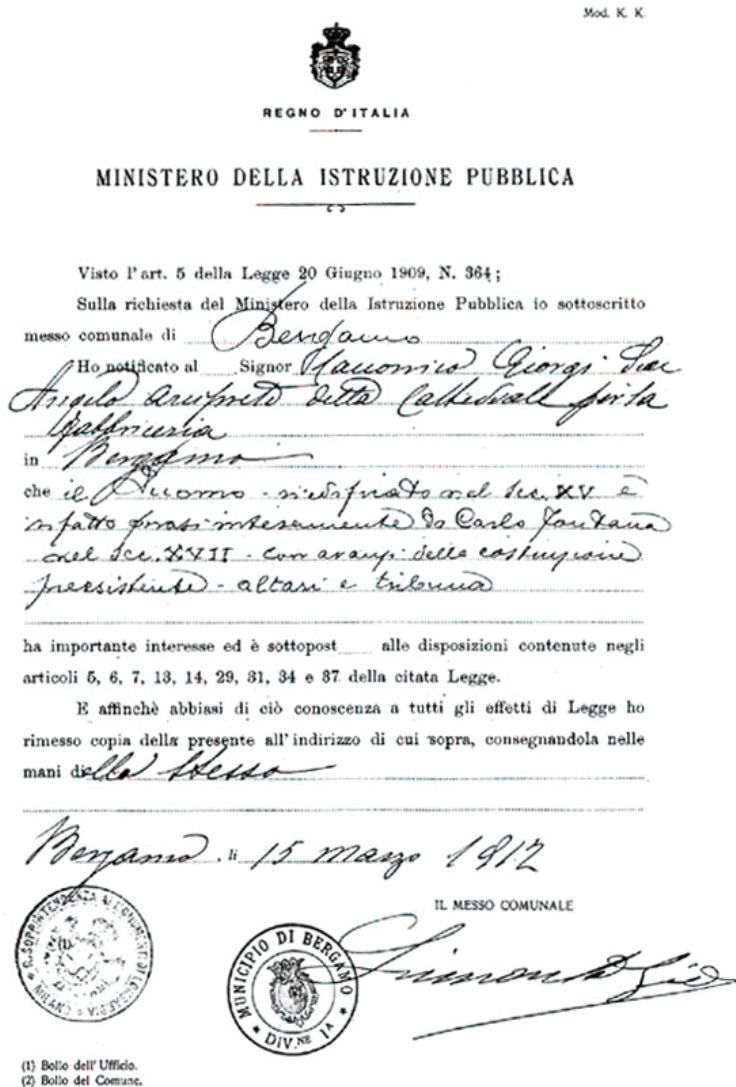 Mod. K. K.
REGNO D'ITALIA
MINISTERO DELLA ISTRUZIONE PUBBLICA
Visto l'art. 5 della Legge 20 Giugno 1909, N. 364;
Sulla richiesta del Ministero della Istruzione Pubblica io sottoscritto
messo comunale di Bergamo
Ho notificato al Signor Giorgi
Angelo arciprete della Cattedrale per la
fabbriceria
in Bergamo
che il Duomo - riedificato nel sec. XV e
rifatto quasi interamente da Carlo Fontana
nel sec. XVII - con avanzi della costruzione
preesistente - altari e tribuna
ha importante interesse ed è sottopost alle disposizioni contenute negli
articoli 5, 6, 7, 13, 14, 29, 31, 34 e 37 della citata Legge.
E affinchè abbiasi di ciò conoscenza a tutti gli effetti di Legge ho
rimesso copia della presente all'indirizzo di cui sopra, consegnandola nelle
mani dello stesso
Bergamo, li 15 marzo 1912
IL MESSO COMUNALE
R. SOPRINTENDENZA AI MONUMENTI DI LOMBARDIA * MILANO *
(1)
MUNICIPIO DI BERGAMO
* DIV.NE 1A *
(1) Bollo dell'Ufficio.
(2) Bollo del Comune.